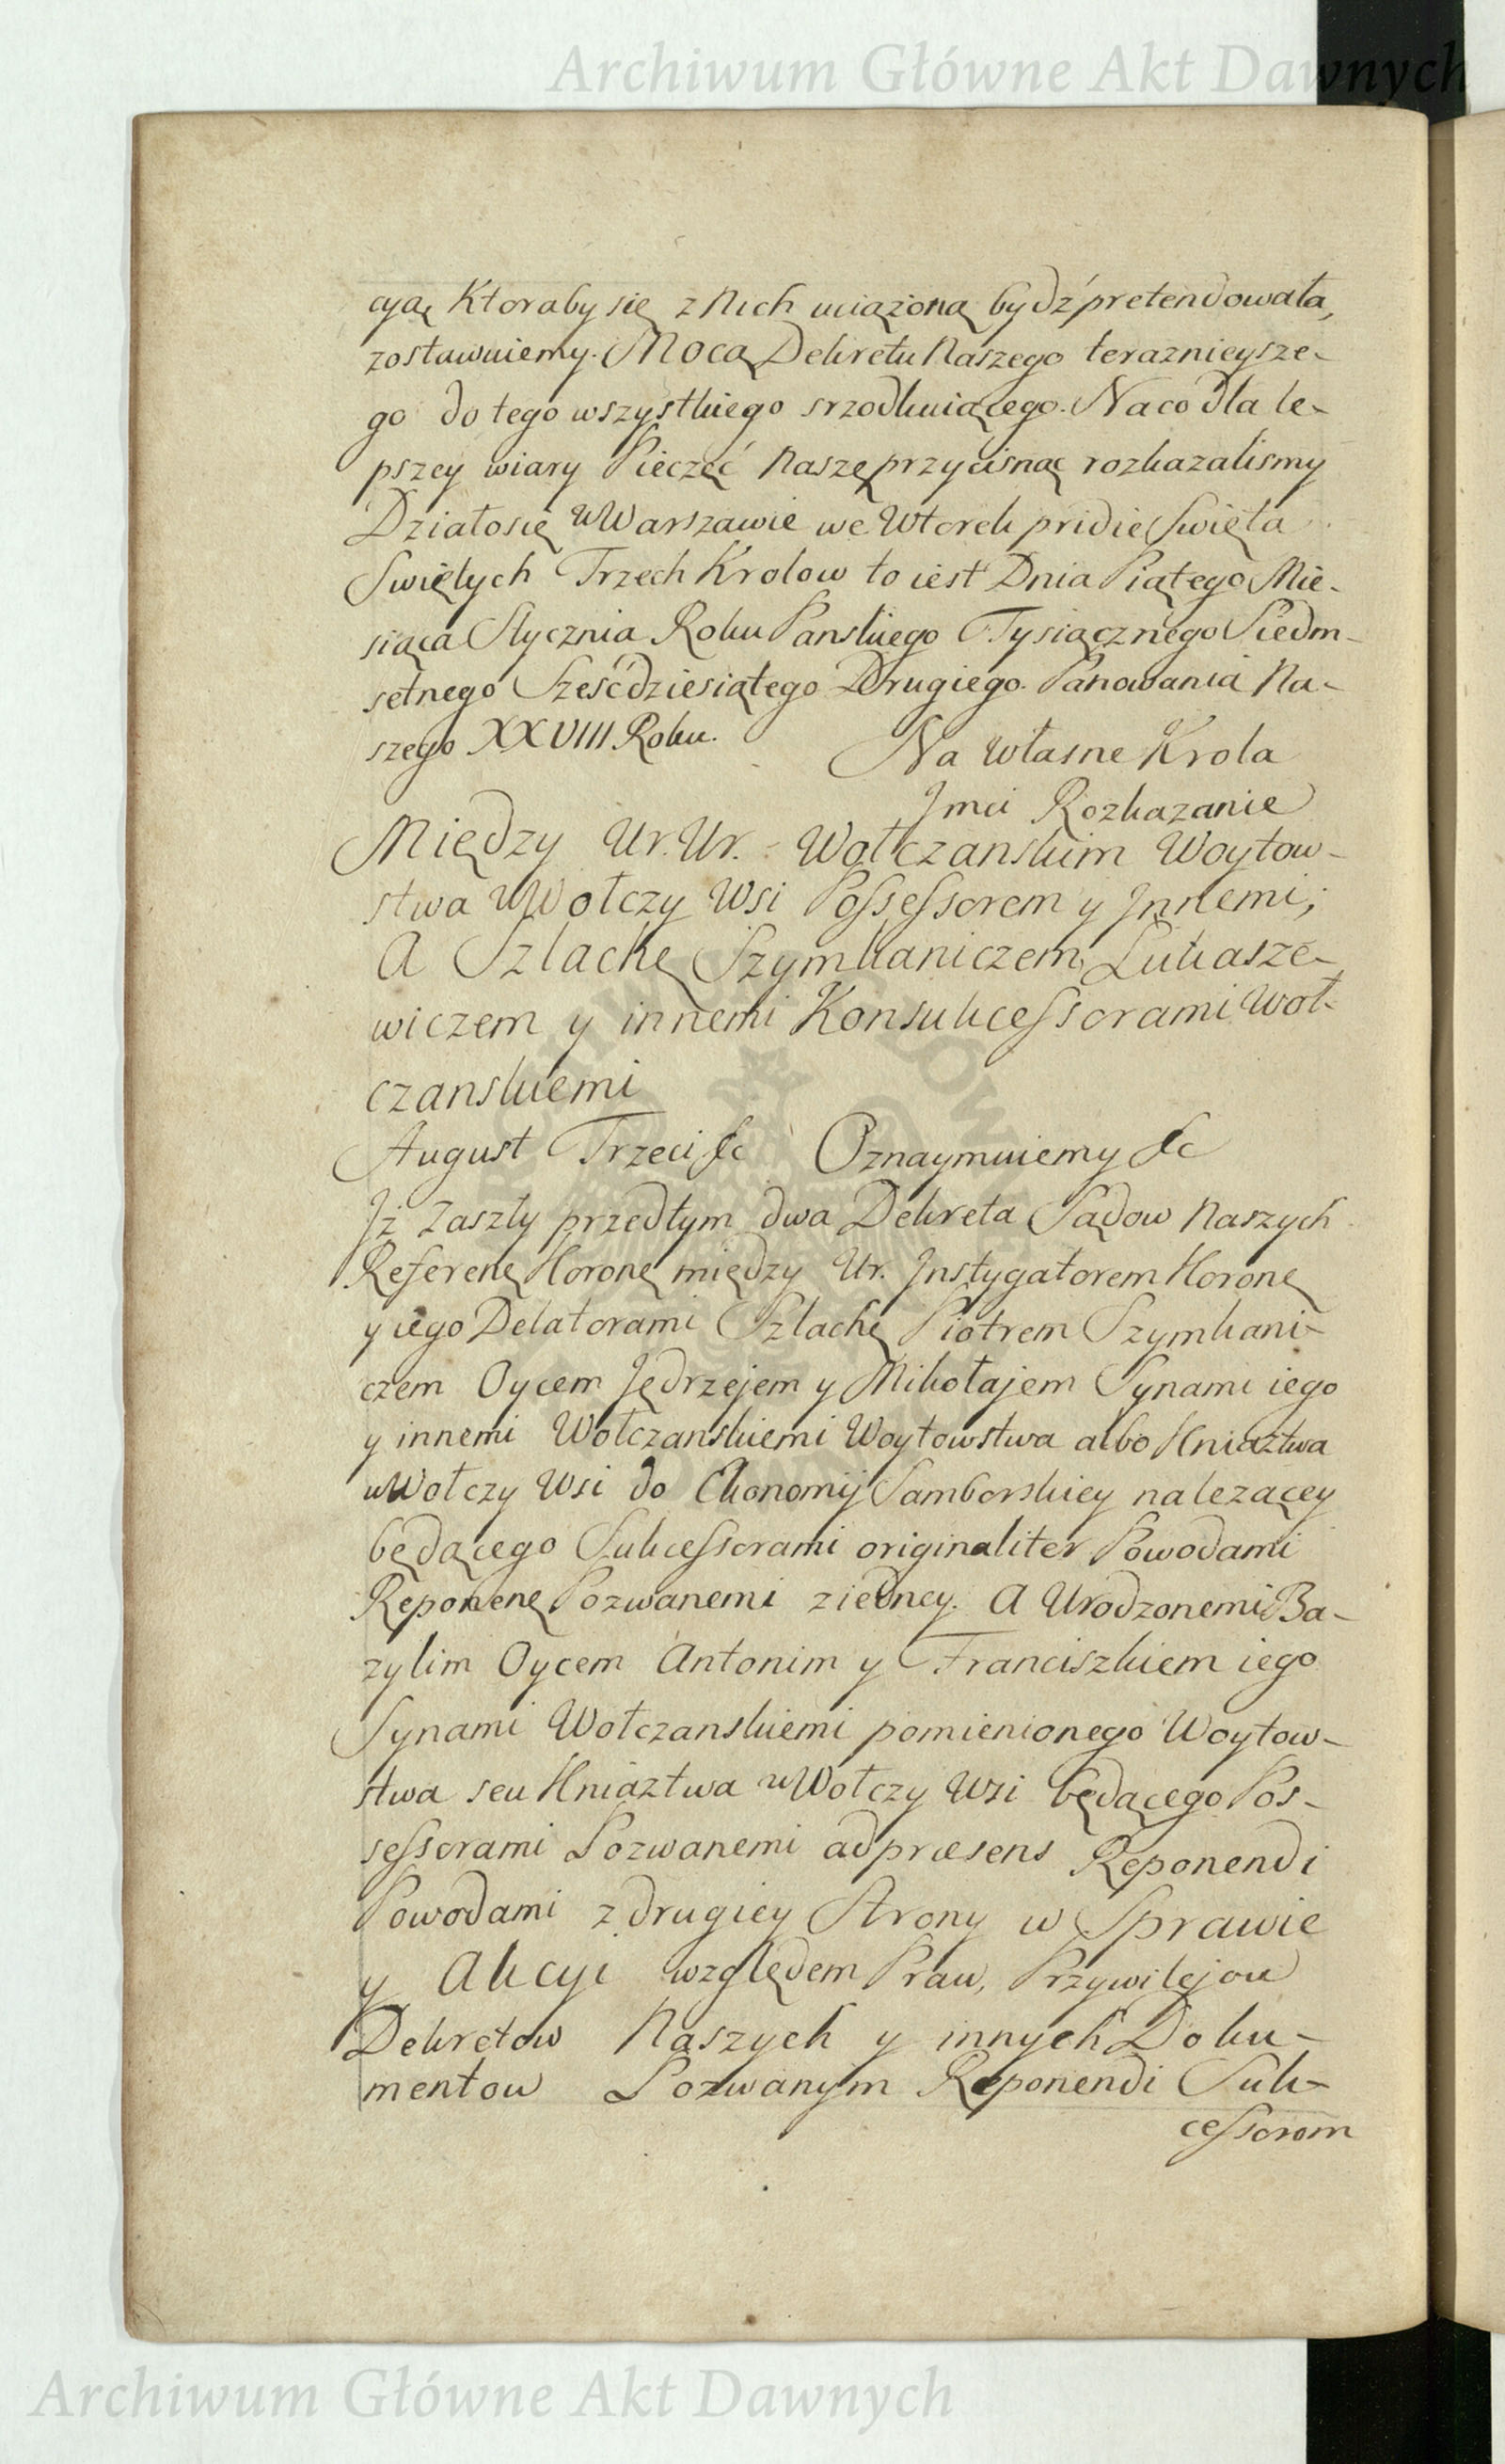 Archiwum Główne Akt Dawnych
cyą Ktoraby się z Nich uciążoną bydź pretendowała,
zostawuiemy. Mocą Dekretu Naszego teraznieysze-
go do tego wszystkiego srzodkuiącego. Na co dla le-
pszey wiary Pieczęć Naszę przycisnąc rozkazalismy
Działo się w Warszawie we Wtorek pridie Swięta
Swiętych Trzech Krolow to iest Dnia Piątego Mie-
siąca Stycznia Roku Panskiego Tysiącznego Siedm-
setnego Sześćdziesiątego Drugiego. Panowania Na-
szego XXVIII Roku.
Na Własne Krola
Jmci Rozkazanie
Między Ur. Ur. Wołczanskim Woytow-
stwa w Wołczy Wsi Possessorem y Innemi;
A Szlachę Szymkaniczem Łukasze-
wiczem y innemi Konsukcessorami Woł-
czanskiemi
August Trzeci &c Oznaymuiemy &c
Iż Zaszły przedtym dwa Dekreta Sądow Naszych
Referenę Koronę między Ur. Instygatorem Koronę
y iego Delatorami Szlachę Piotrem Szymkani-
czem Oycem Jędrzejem y Mikołajem Synami iego
y innemi Wołczanskiemi Woytowstwa albo Kniaztwa
w Wołczy Wsi do Ekonomij Samborskiey nalezącey
będącego Sukcessorami originaliter Powodami
Reponenę Pozwanemi z iedney. A Urodzonemi Ba-
zylim Oycem Antonim y Franciszkiem iego
Synami Wołczanskiemi pomienionego Woytow-
stwa seu Kniaztwa w Wołczy Wsi będącego Pos-
sessorami Pozwanemi ad præsens Reponendi
Powodami z drugiey Strony w Sprawie
y Akcyi względem Praw, Przywilejow
Dekretow Naszych y innych Doku-
mentow Pozwanym Reponendi Suk-
cessorom
Archiwum Główne Akt Dawnych